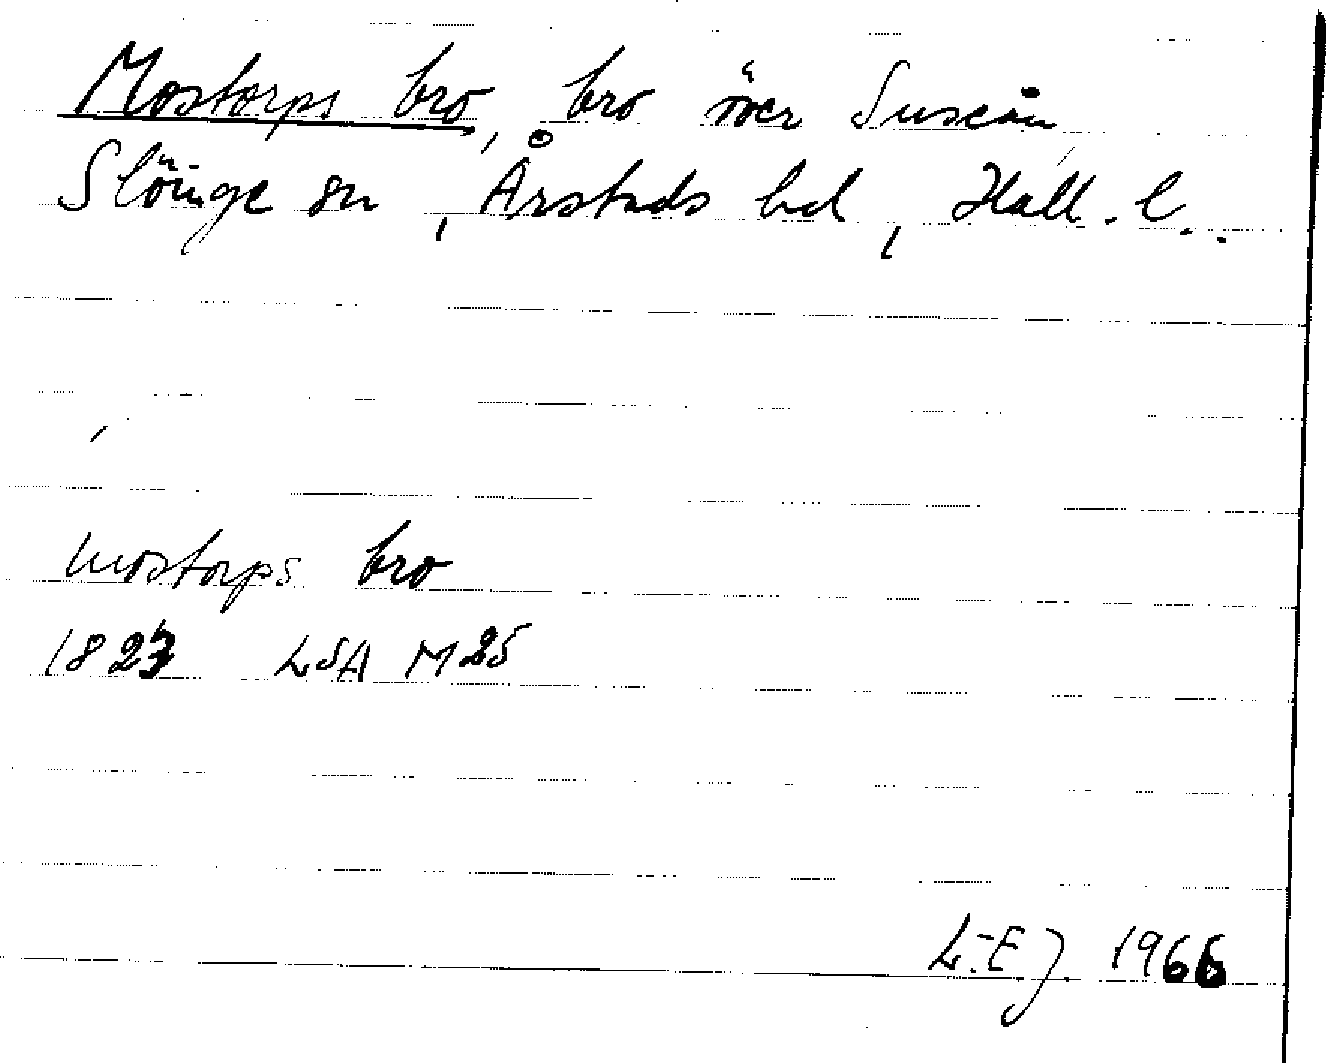 Mostorps bro, bro över Suseån
Slöinge sn, Årstads hd, Hall. l..
Mostorps bro
1823 LSA M25
L-E J. 1966